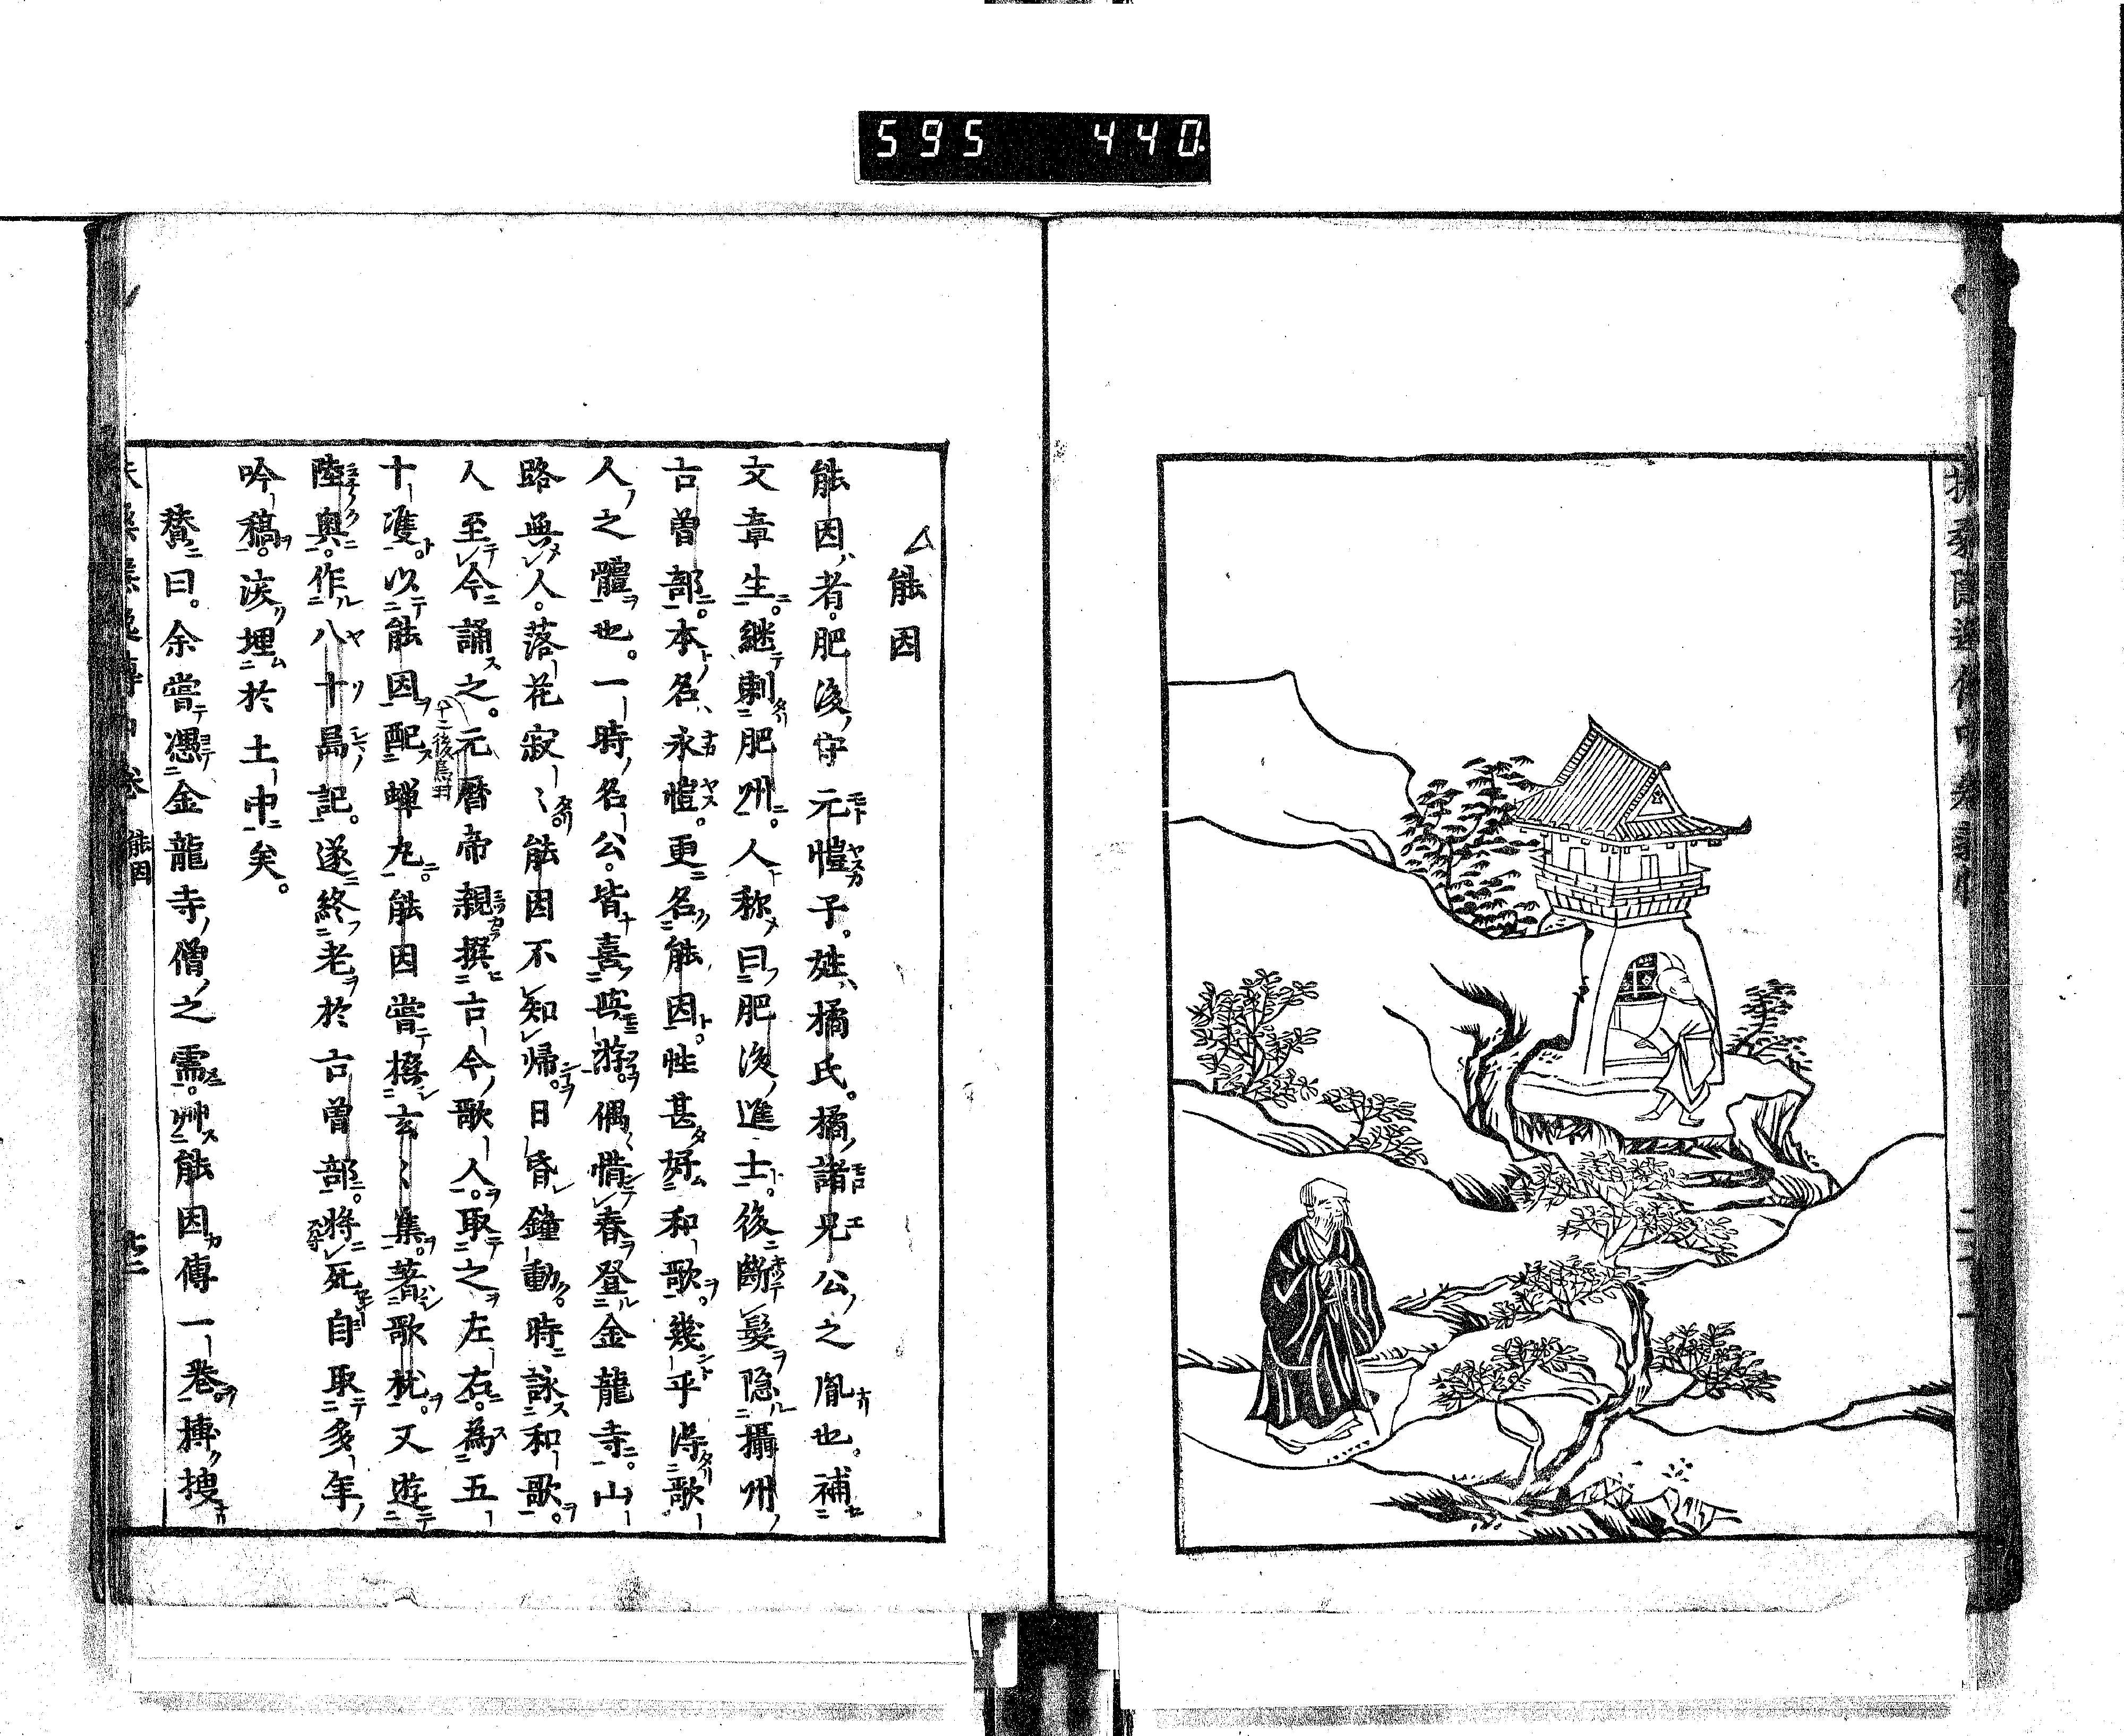 595 440.
能因
能因者。肥後守元愷子。姓橘氏。橘諸兄公之胤也。補
文章生。継刺肥州。人称曰肥後進士。後断髪隠攝州
古曽部。本名永愷。更名能因。性甚好和歌。幾乎得歌
人之體也。一時名公。皆喜與游。偶惜春登金龍寺。山
路無人。落花寂〻。能因不知帰。日昏鐘動。時詠和歌。
人至今誦之。元暦帝親撰古今歌人。取之左右。為五
十隻。以能因配蝉丸。能因嘗撰玄〻集。著歌枕。又遊
陸奥。作八十島記。遂終老於古曽部。將死自取多年
吟稿。深埋於土中矣。
賛曰。余嘗憑金龍寺僧之需。艸能因傳一巻。摶捜
扶桑隠逸傳中巻 能因